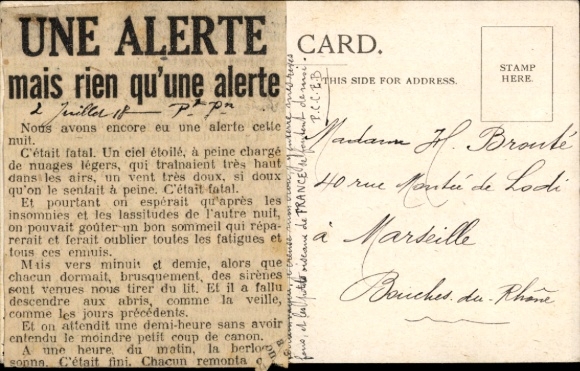 UNE ALERTE
mais rien qu'une alerte
2 Juillet 18
Nous avons encore eu une alerte cette
nuit.
C'était fatal. Un ciel étoilé, à peine chargé
de nuages légers, qui traînaient très haut
dans les airs, un vent très doux, si doux
qu'on le sentait à peine. C'était fatal.
Et pourtant on espérait qu'après les
insomnies et les lassitudes de l'autre nuit,
on pouvait goûter un bon sommeil qui répa-
rerait et ferait oublier toutes les fatigues et
tous ces ennuis.
Mais vers minuit et demie, alors que
chacun dormait, brusquement, des sirènes
sont venues nous tirer du lit. Et il a fallu
descendre aux abris, comme la veille,
comme les jours précédents.
Et on attendit une demi-heure sans avoir
entendu le moindre petit coup de canon.
A une heure, du matin, la berloq
sonna. C'était fini. Chacun remonta
CARD.
THIS SIDE FOR ADDRESS.
STAMP
HERE.
P.C.C.B.D
oiseaux de FRANCE
Madame H. Brouté
40 rue Montée de Lodi
à Marseille
Bouches-du-Rhône